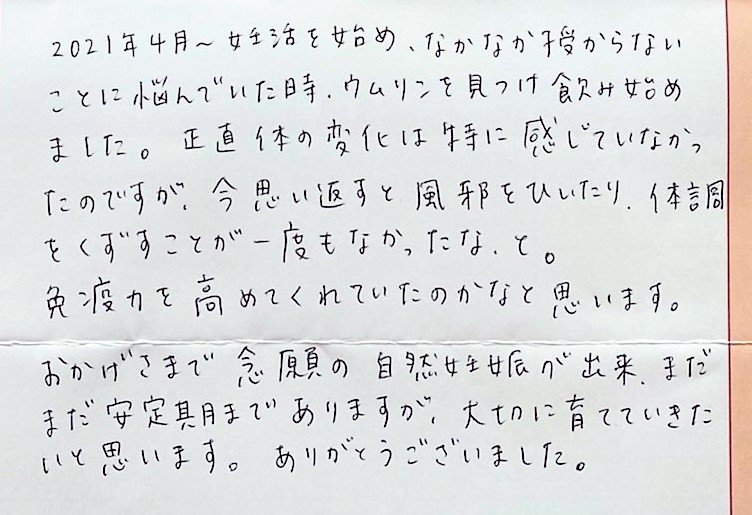 2021年4月～妊活を始め、なかなか授からない
ことに悩んでいた時、ウムリンを見つけ飲み始め
ました。正直体の変化は特に感じていなかっ
たのですが、今思い返すと風邪をひいたり、体調
をくずすことが一度もなかったな、と。
免疫力を高めてくれていたのかなと思います。
おかげさまで念願の自然妊娠が出来、まだ
まだ安定期までありますが、大切に育てていきた
いと思います。ありがとうございました。